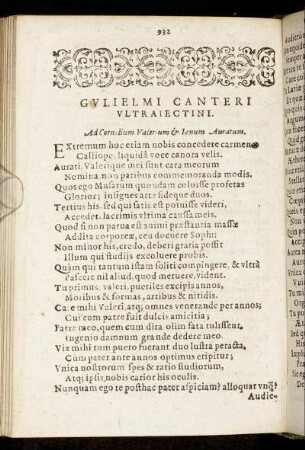 932
GVLIELMI CANTERI
VLTRAIECTINI.
Ad Cornelium Valerium & Ianum Auratum.
EXtremum hoc etiam nobis concedere carmen
Calliope, liquida voce canora velis.
Aurati, Valerique mei sunt cara meorum
Nomina non paribus commemoranda modis.
Quos ego Musarum quondam coluisse profetas
Glorior; insignes arte fideque duos.
Tertius his. sed qui satis est potuisse videri,
Accedet. lacrimis vltima caussa meis.
Quod si non parua est animi præstantia massæ
Addita corporeæ, ceu docuere Sophi:
Non minor his, credo, deberi gratia possit
Illum qui studijs excoluere probis.
Quàm qui tantum istam soliti compingere, & vltrà
Pascere nil aliud, quod metuere, vident.
Tu primus, Valeri, pueriles excipis annos,
Moribus & formas, artibus & nitidis.
Care mihi Valeri, atq; omnes venerande per annos;
Cui cum patre fuit dulcis amicitia;
Patre meo, quem cum dira olim fata tulissent,
Ingenio damnum grande dedere meo.
Vix mihi tum puero fuerant duo lustra peracta,
Cùm pater ante annos optimus eripitur;
Vnica nostrorum spes & ratio studiorum,
Atq; ipsis nobis carior his oculis.
Nunquam ego te posthac pater aspiciam? alloquar vnq̃?
Audie-